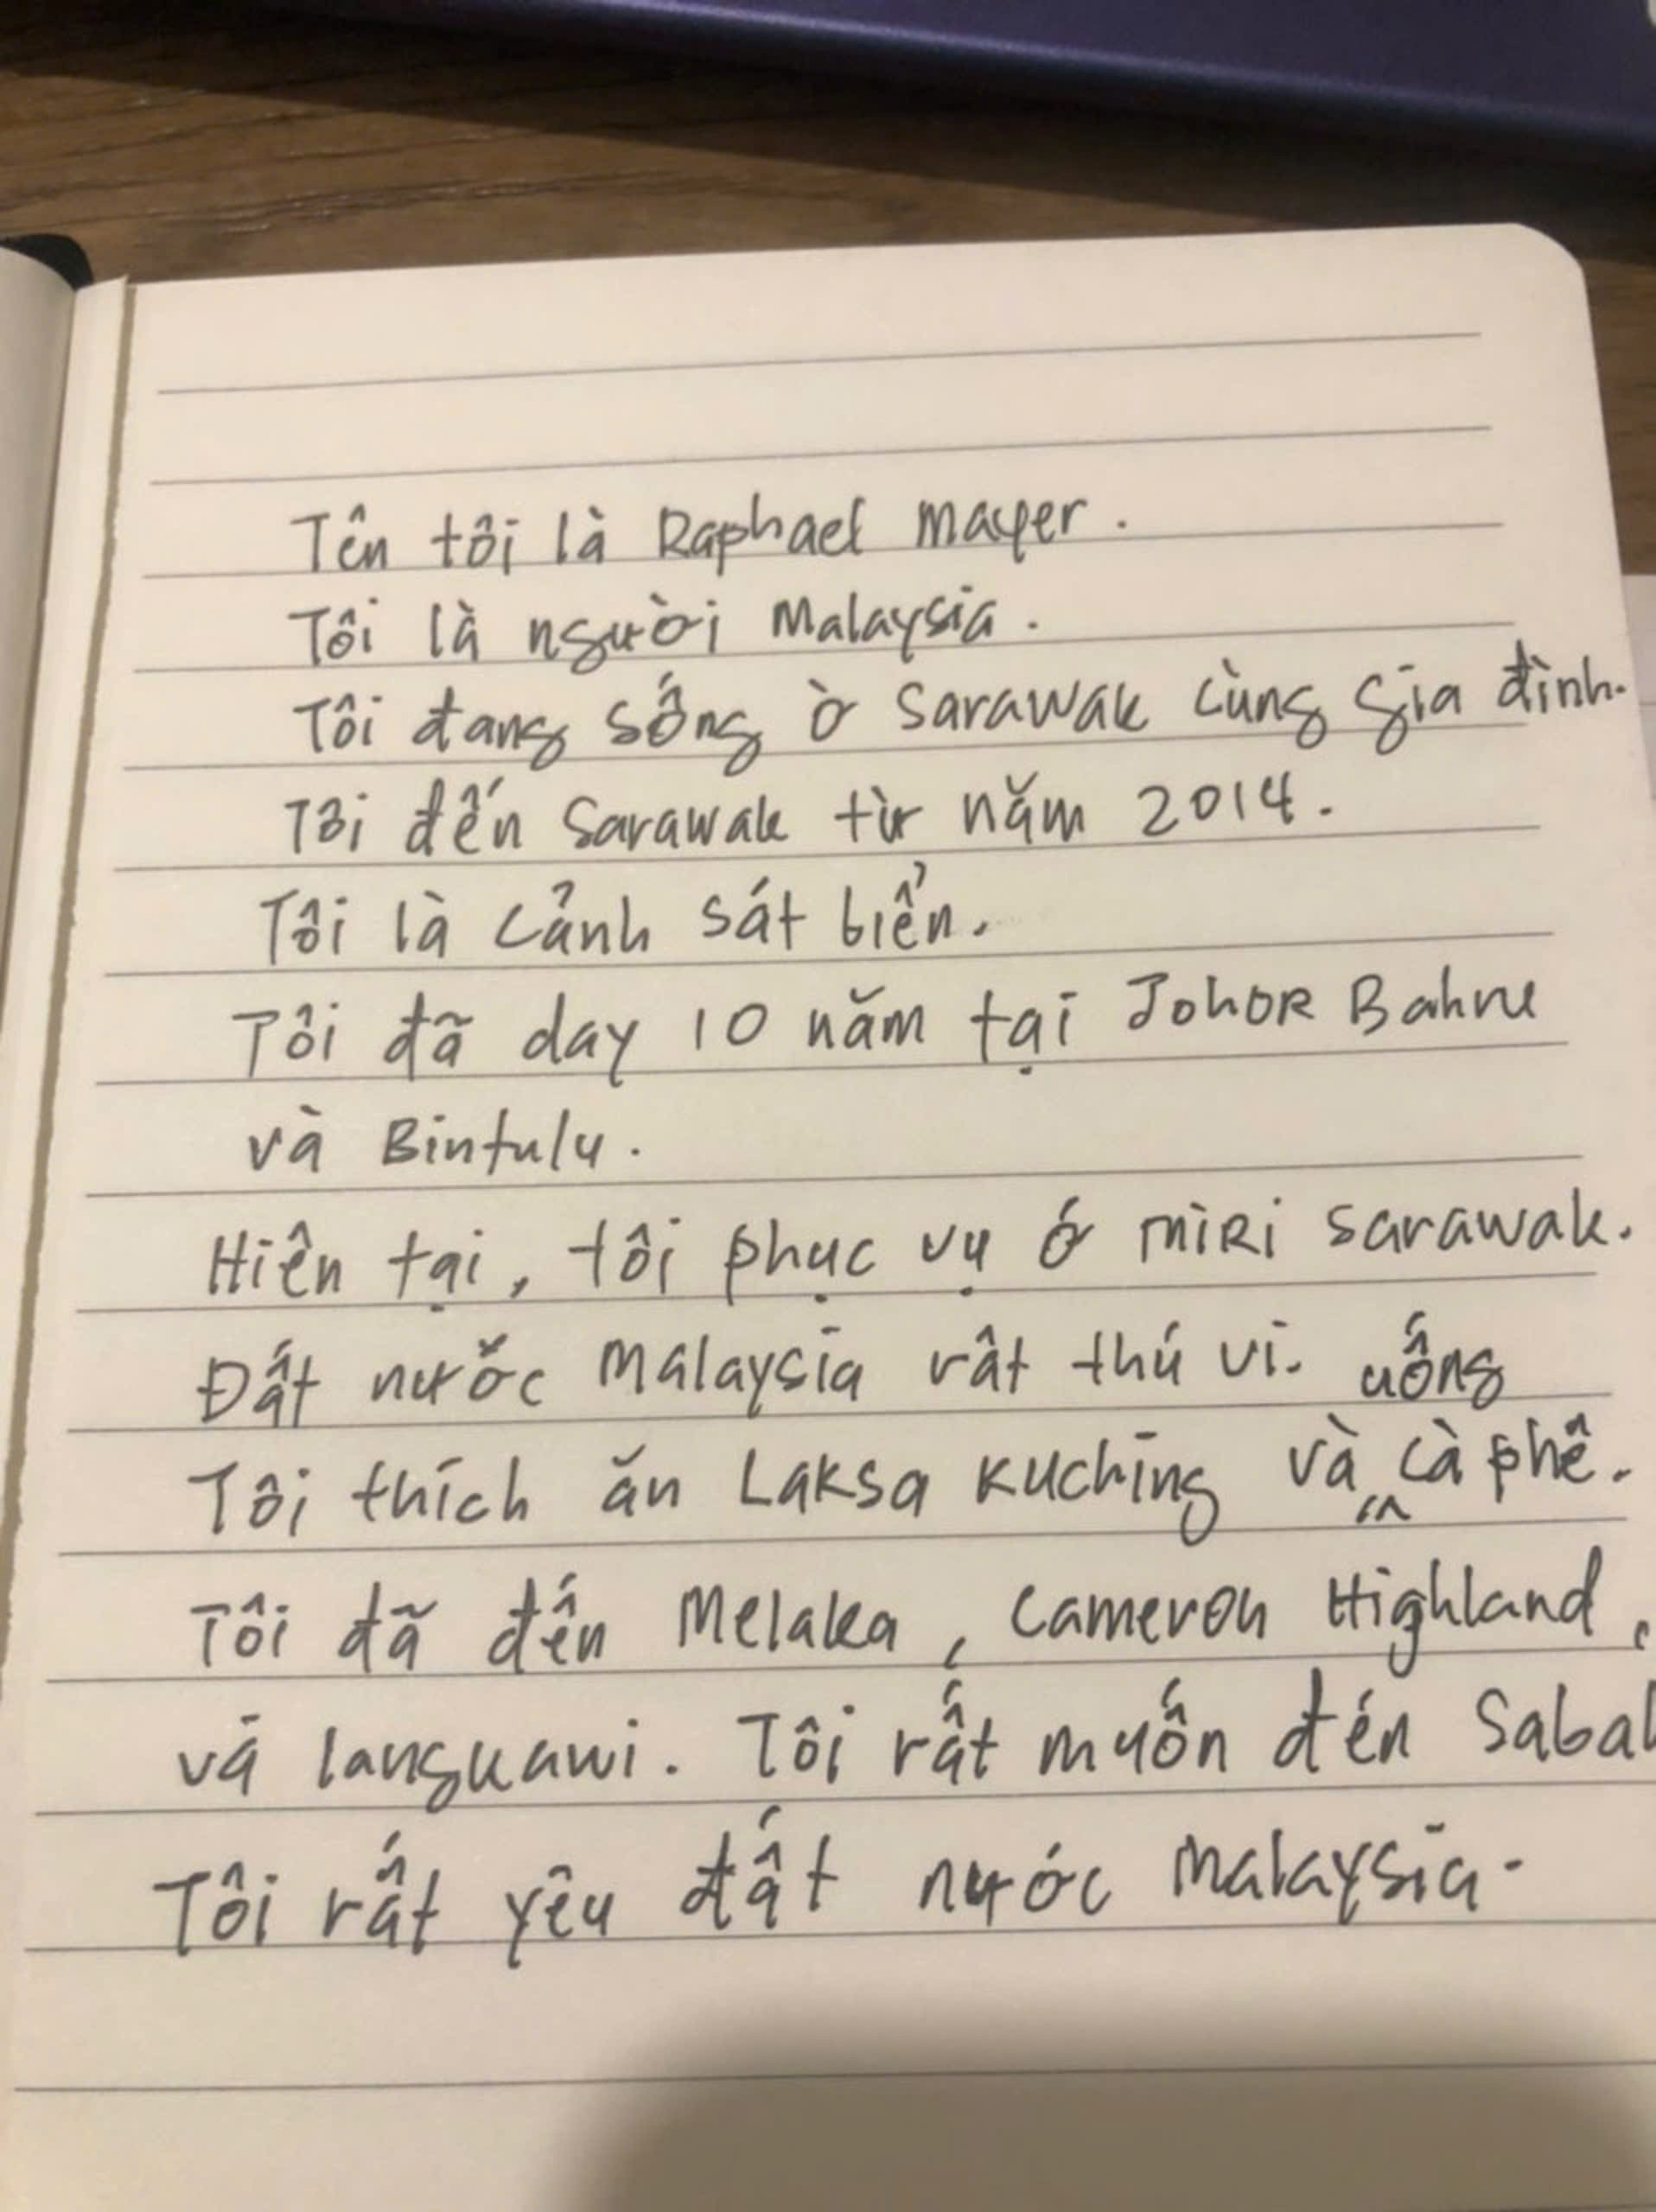 Tên tôi là Raphael Mayer.
Tôi là người Malaysia.
Tôi đang sống ờ Sarawak cùng gia đình.
Tôi đến Sarawak từ năm 2014.
Tôi là Cảnh sát biển.
Tôi đã day 10 năm tại Johor Bahru
và Bintulu.
Hiên tại, tôi phục vụ ớ miri Sarawak.
Đất nước Malaysia rât thú vi. uống
Tôi thích ăn Laksa Kuching và cà phê.
Tôi đã đến Melaka, Cameron Highland,
và langkawi. Tôi rất muốn đén Sabah
Tôi rất yêu đất nước Malaysia.